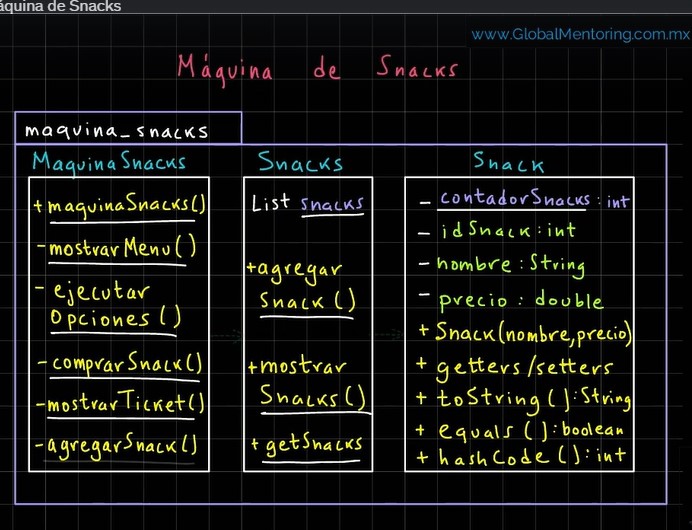 áquina de Snacks
www.GlobalMentoring.com.mx
Máquina de Snacks
maquina_snacks
MaquinaSnacks
+ maquinaSnacks()
- mostrarMenu()
- ejecutar
Opciones()
- comprarSnack()
- mostrarTicket()
- agregarSnack()
Snacks
List snacks
+agregar
Snack()
+mostrar
Snacks()
+ getSnacks
Snack
- contadorSnacks: int
- idSnack: int
- nombre: String
- precio: double
+ Snack(nombre,precio)
+ getters/setters
+ toString(): String
+ equals(): boolean
+ hashCode(): int